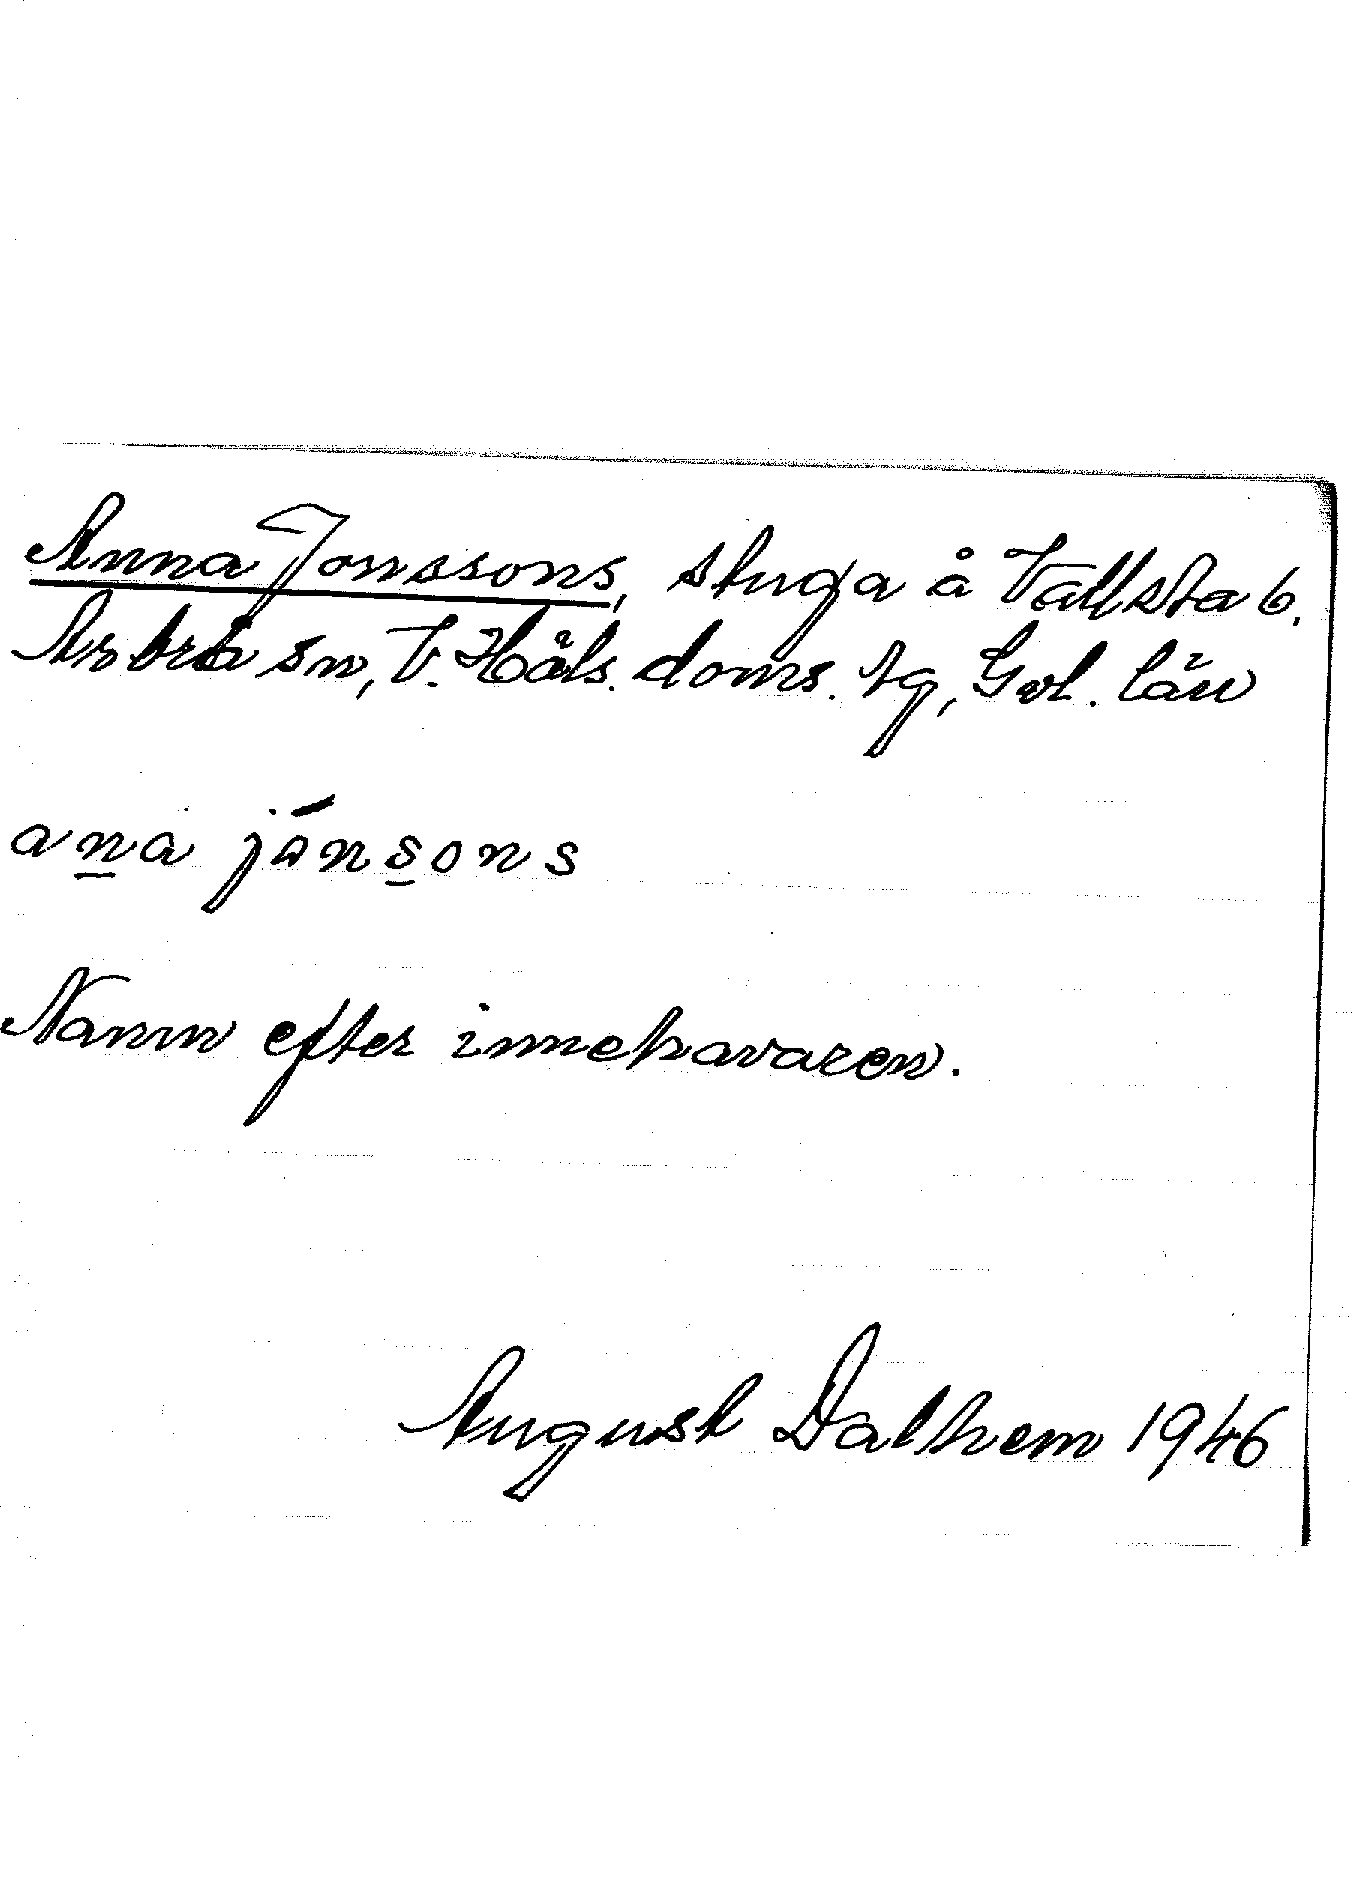 Anna Jonssons, stuga å Vallsta 6.
Arbrå sn, V. Häls. doms. tg, Gvl. län
ana jónsons
Namn efter innehavaren.
August Dalhem 1946